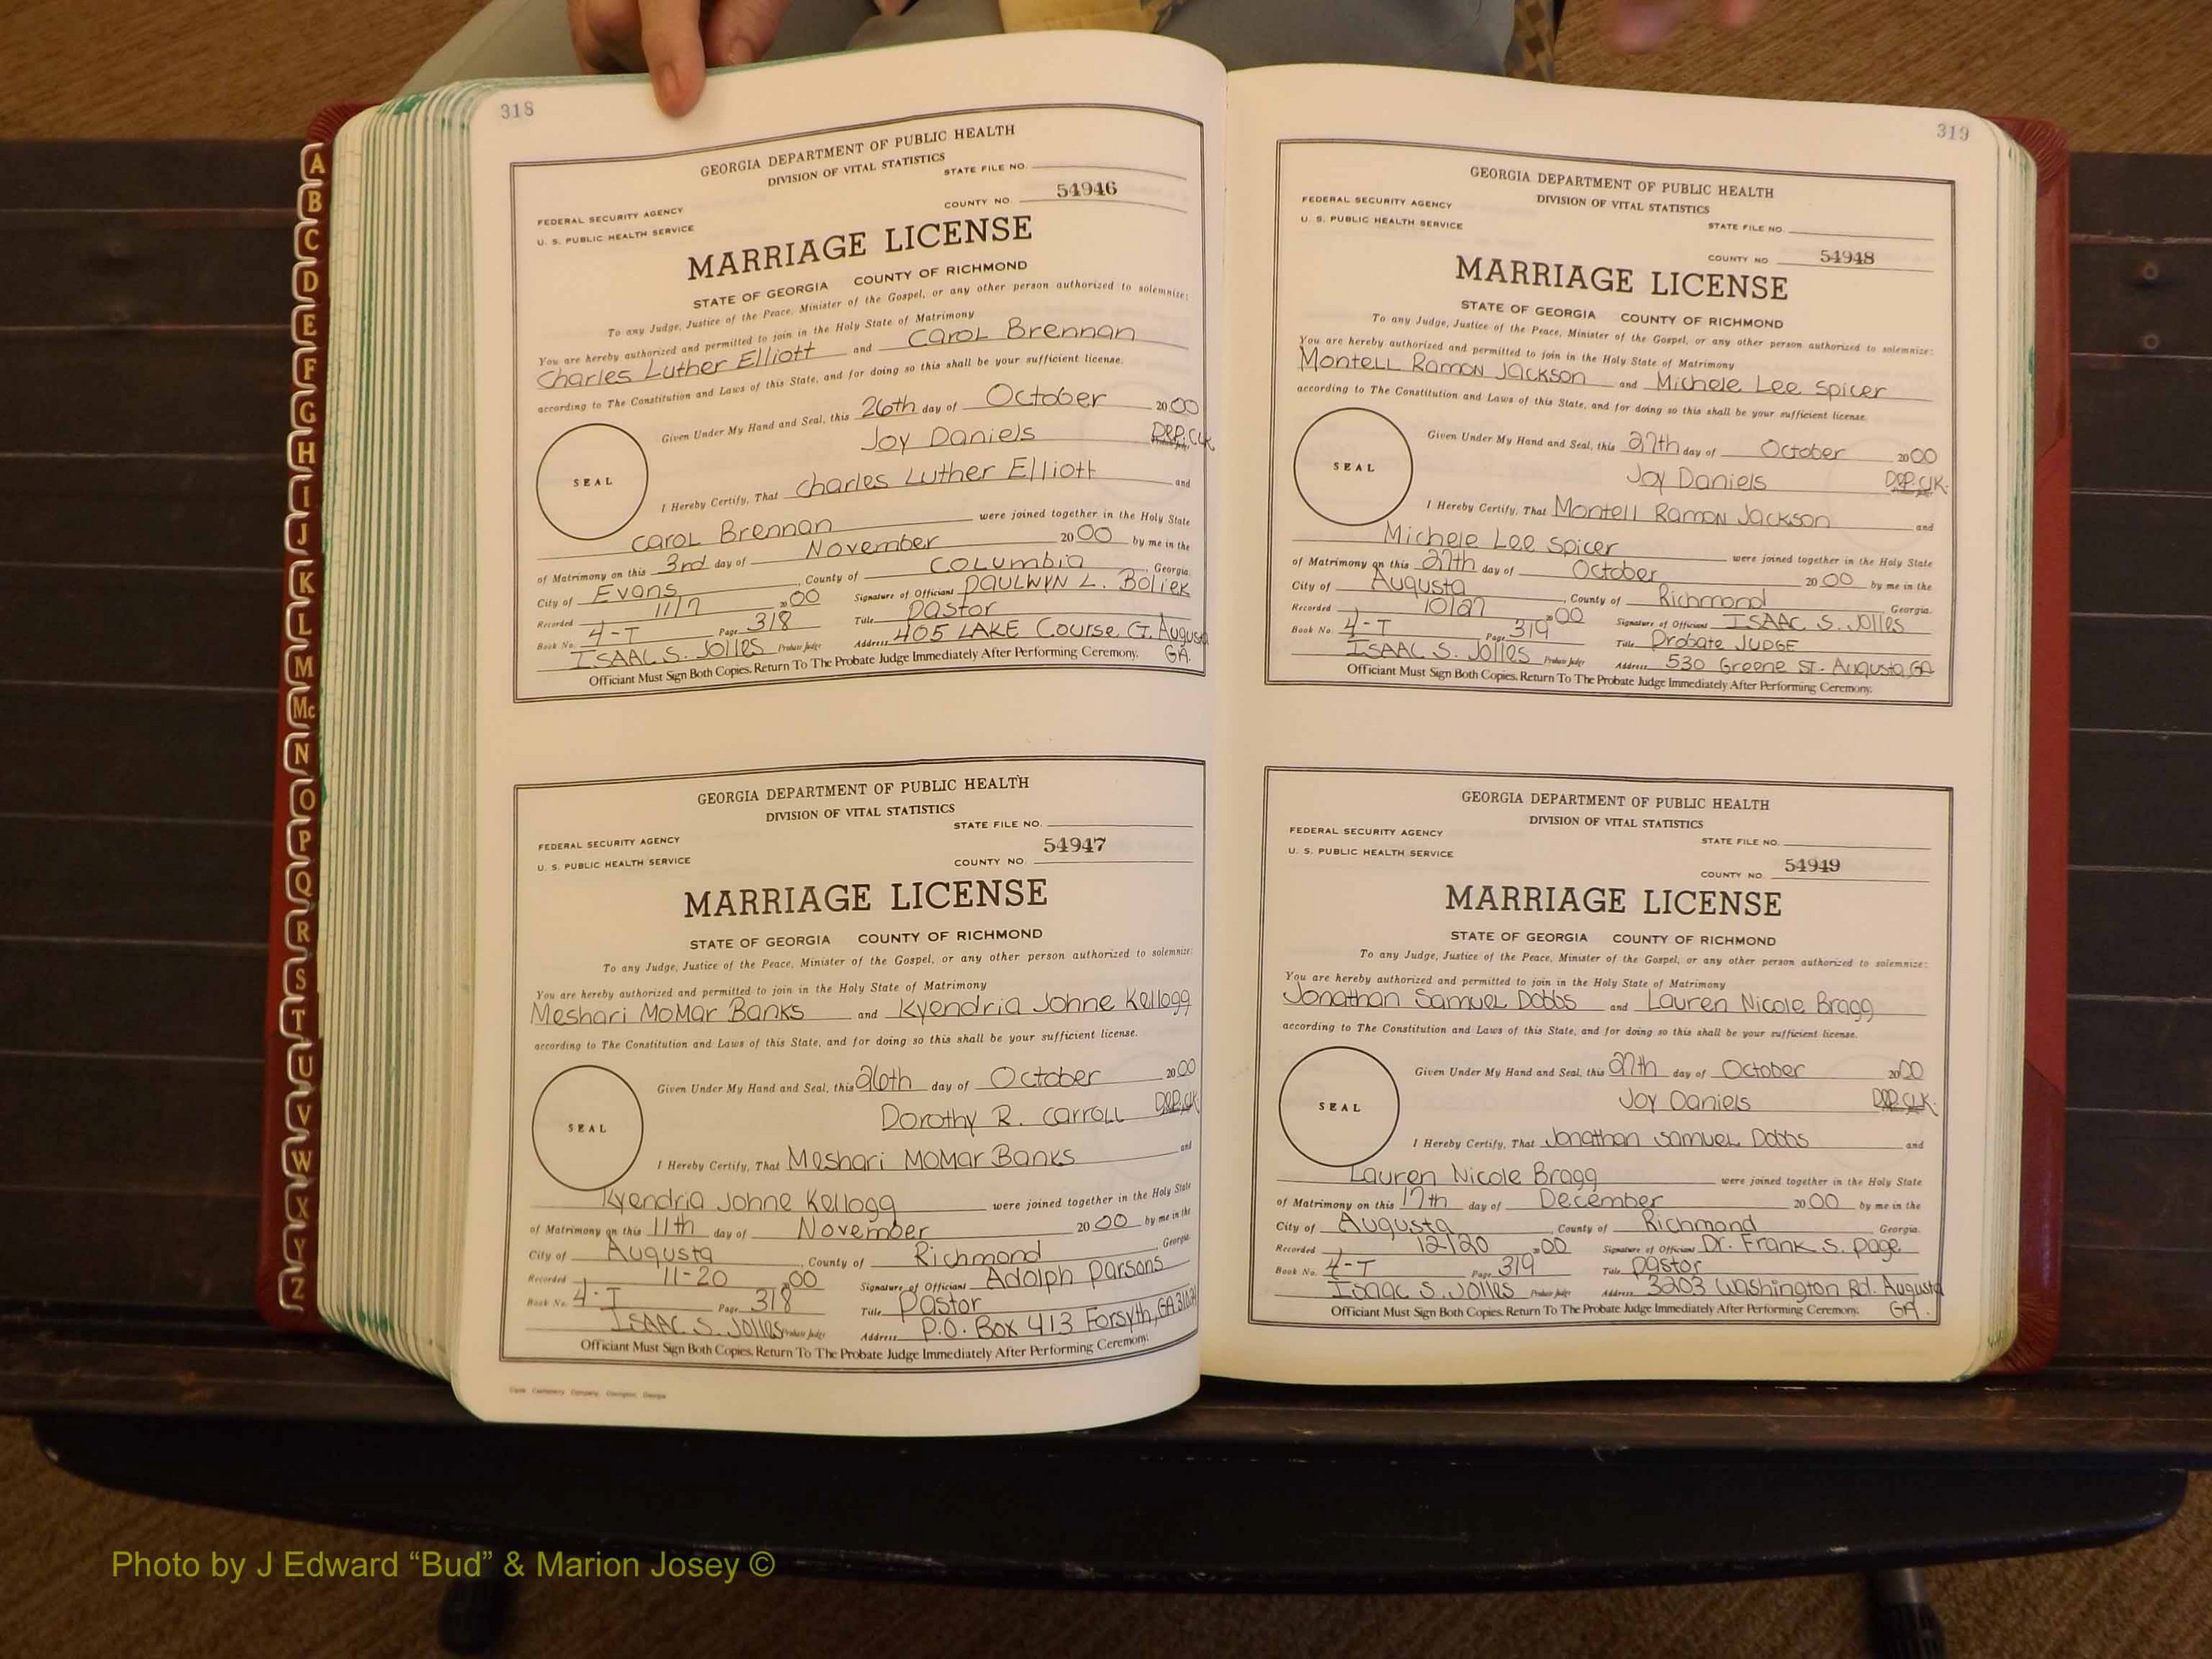 A
B
C
D
E
F
G
H
I
J
K
L
M
Mc
N
O
P
Q
R
S
T
U
V
W
X
Y
Z
318
GEORGIA DEPARTMENT OF PUBLIC HEALTH
DIVISION OF VITAL STATISTICS
STATE FILE NO.
FEDERAL SECURITY AGENCY
U. S. PUBLIC HEALTH SERVICE
COUNTY NO. 54946
MARRIAGE LICENSE
STATE OF GEORGIA COUNTY OF RICHMOND
To any Judge, Justice of the Peace, Minister of the Gospel, or any other person authorized to solemnize:
You are hereby authorized and permitted to join in the Holy State of Matrimony
Charles Luther Elliott and Carol Brennan
according to The Constitution and Laws of this State, and for doing so this shall be your sufficient license.
Given Under My Hand and Seal, this 26th day of October 2000
Joy Daniels DEP. CLK
SEAL
I Hereby Certify, That Charles Luther Elliott and
Carol Brennan were joined together in the Holy State
of Matrimony on this 3rd day of November 2000 by me in the
City of Evans, County of Columbia, Georgia.
Recorded 11/7 2000 Signature of Officiant PAULWYN L. Boliek
Book No. 4-T Page 318 Title Pastor
ISAAC S. Jolles Probate Judge Address 405 LAKE Course Ct. Augusta GA.
Officiant Must Sign Both Copies. Return To The Probate Judge Immediately After Performing Ceremony.
GEORGIA DEPARTMENT OF PUBLIC HEALTH
DIVISION OF VITAL STATISTICS
STATE FILE NO.
FEDERAL SECURITY AGENCY
U. S. PUBLIC HEALTH SERVICE
COUNTY NO. 54947
MARRIAGE LICENSE
STATE OF GEORGIA COUNTY OF RICHMOND
To any Judge, Justice of the Peace, Minister of the Gospel, or any other person authorized to solemnize:
You are hereby authorized and permitted to join in the Holy State of Matrimony
Meshari MoMar Banks and Kyendria Johne Kellogg
according to The Constitution and Laws of this State, and for doing so this shall be your sufficient license.
Given Under My Hand and Seal, this 26th day of October 2000
Dorothy R. Carroll DEP. CLK
SEAL
I Hereby Certify, That Meshari MoMar Banks and
Kyendria Johne Kellogg were joined together in the Holy State
of Matrimony on this 11th day of November 2000 by me in the
City of Augusta, County of Richmond, Georgia.
Recorded 11-20 2000 Signature of Officiant Adolph Parsons
Book No. 4-T Page 318 Title Pastor
ISAAC S. Jolles Probate Judge Address P.O. Box 413 Forsyth, GA
Officiant Must Sign Both Copies. Return To The Probate Judge Immediately After Performing Ceremony.
319
GEORGIA DEPARTMENT OF PUBLIC HEALTH
DIVISION OF VITAL STATISTICS
FEDERAL SECURITY AGENCY
U. S. PUBLIC HEALTH SERVICE
STATE FILE NO.
COUNTY NO 54948
MARRIAGE LICENSE
STATE OF GEORGIA COUNTY OF RICHMOND
To any Judge, Justice of the Peace, Minister of the Gospel, or any other person authorized to solemnize:
You are hereby authorized and permitted to join in the Holy State of Matrimony
Montell Ramon Jackson and Michele Lee Spicer
according to The Constitution and Laws of this State, and for doing so this shall be your sufficient license.
Given Under My Hand and Seal, this 27th day of October 2000
Joy Daniels DEP. CLK.
SEAL
I Hereby Certify, That Montell Ramon Jackson and
Michele Lee Spicer were joined together in the Holy State
of Matrimony on this 27th day of October 2000 by me in the
City of Augusta, County of Richmond, Georgia.
Recorded 10/27 2000 Signature of Officiant ISAAC S. Jolles
Book No. 4-T Page 319 Title Probate JUDGE
ISAAC S. Jolles Probate Judge Address 530 Greene ST. Augusta, GA
Officiant Must Sign Both Copies. Return To The Probate Judge Immediately After Performing Ceremony.
GEORGIA DEPARTMENT OF PUBLIC HEALTH
DIVISION OF VITAL STATISTICS
FEDERAL SECURITY AGENCY
U. S. PUBLIC HEALTH SERVICE
STATE FILE NO.
COUNTY NO. 54949
MARRIAGE LICENSE
STATE OF GEORGIA COUNTY OF RICHMOND
To any Judge, Justice of the Peace, Minister of the Gospel, or any other person authorized to solemnize:
You are hereby authorized and permitted to join in the Holy State of Matrimony
Jonathan Samuel Dobbs and Lauren Nicole Bragg
according to The Constitution and Laws of this State, and for doing so this shall be your sufficient license.
Given Under My Hand and Seal, this 27th day of October 2000
Joy Daniels DEP. CLK.
SEAL
I Hereby Certify, That Jonathan Samuel Dobbs and
Lauren Nicole Bragg were joined together in the Holy State
of Matrimony on this 17th day of December 2000 by me in the
City of Augusta, County of Richmond, Georgia.
Recorded 12/20 2000 Signature of Officiant Dr. Frank S. Page
Book No. 4-T Page 319 Title Pastor
Isaac S. Jolles Probate Judge Address 3203 Washington Rd. Augusta GA.
Officiant Must Sign Both Copies. Return To The Probate Judge Immediately After Performing Ceremony.
Photo by J Edward “Bud” & Marion Josey ©